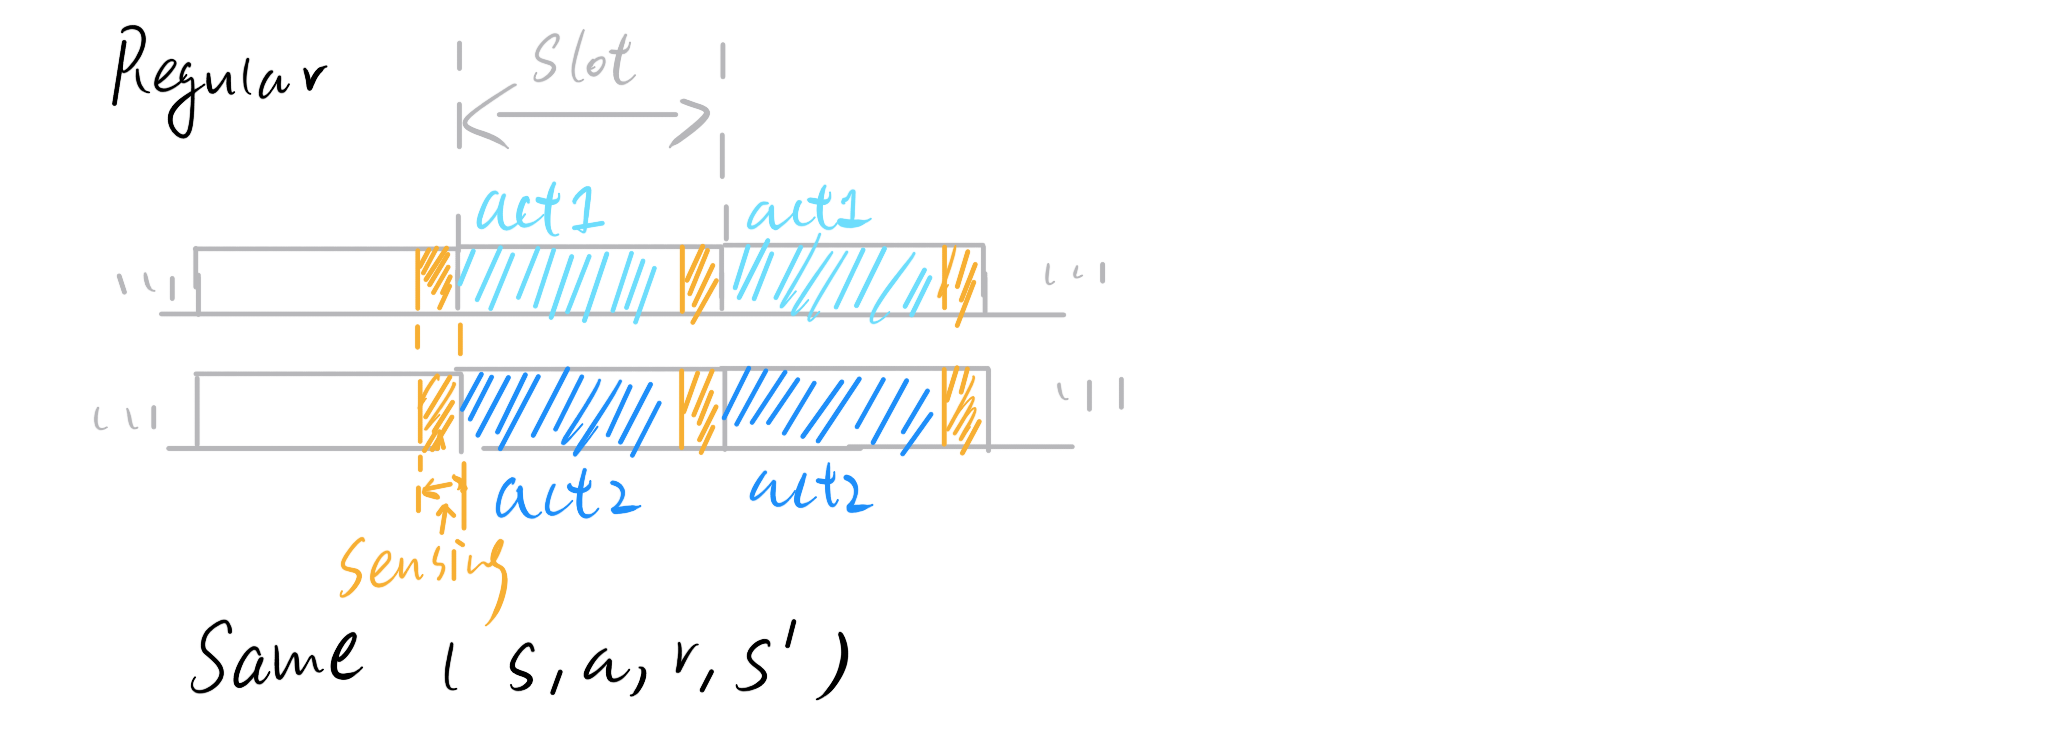 Regular
Slot
act1 act1
act2 act2
sensing
Same (s, a, r, s')